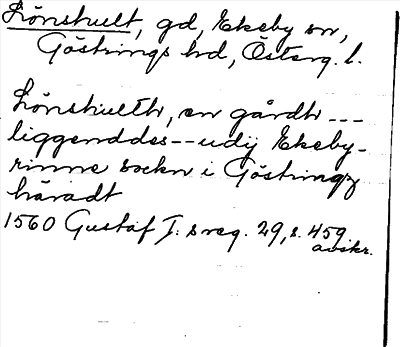 Lönshult, gd, Ekeby sn,
Göstrings hd, Österg. l.
Lönshullth, en gårdh ---
liggenddes -- udij Ekeby-
rinne sockn i Göstringz
häradt
1560 Gustaf I:s reg. 29, s. 459
avskr.